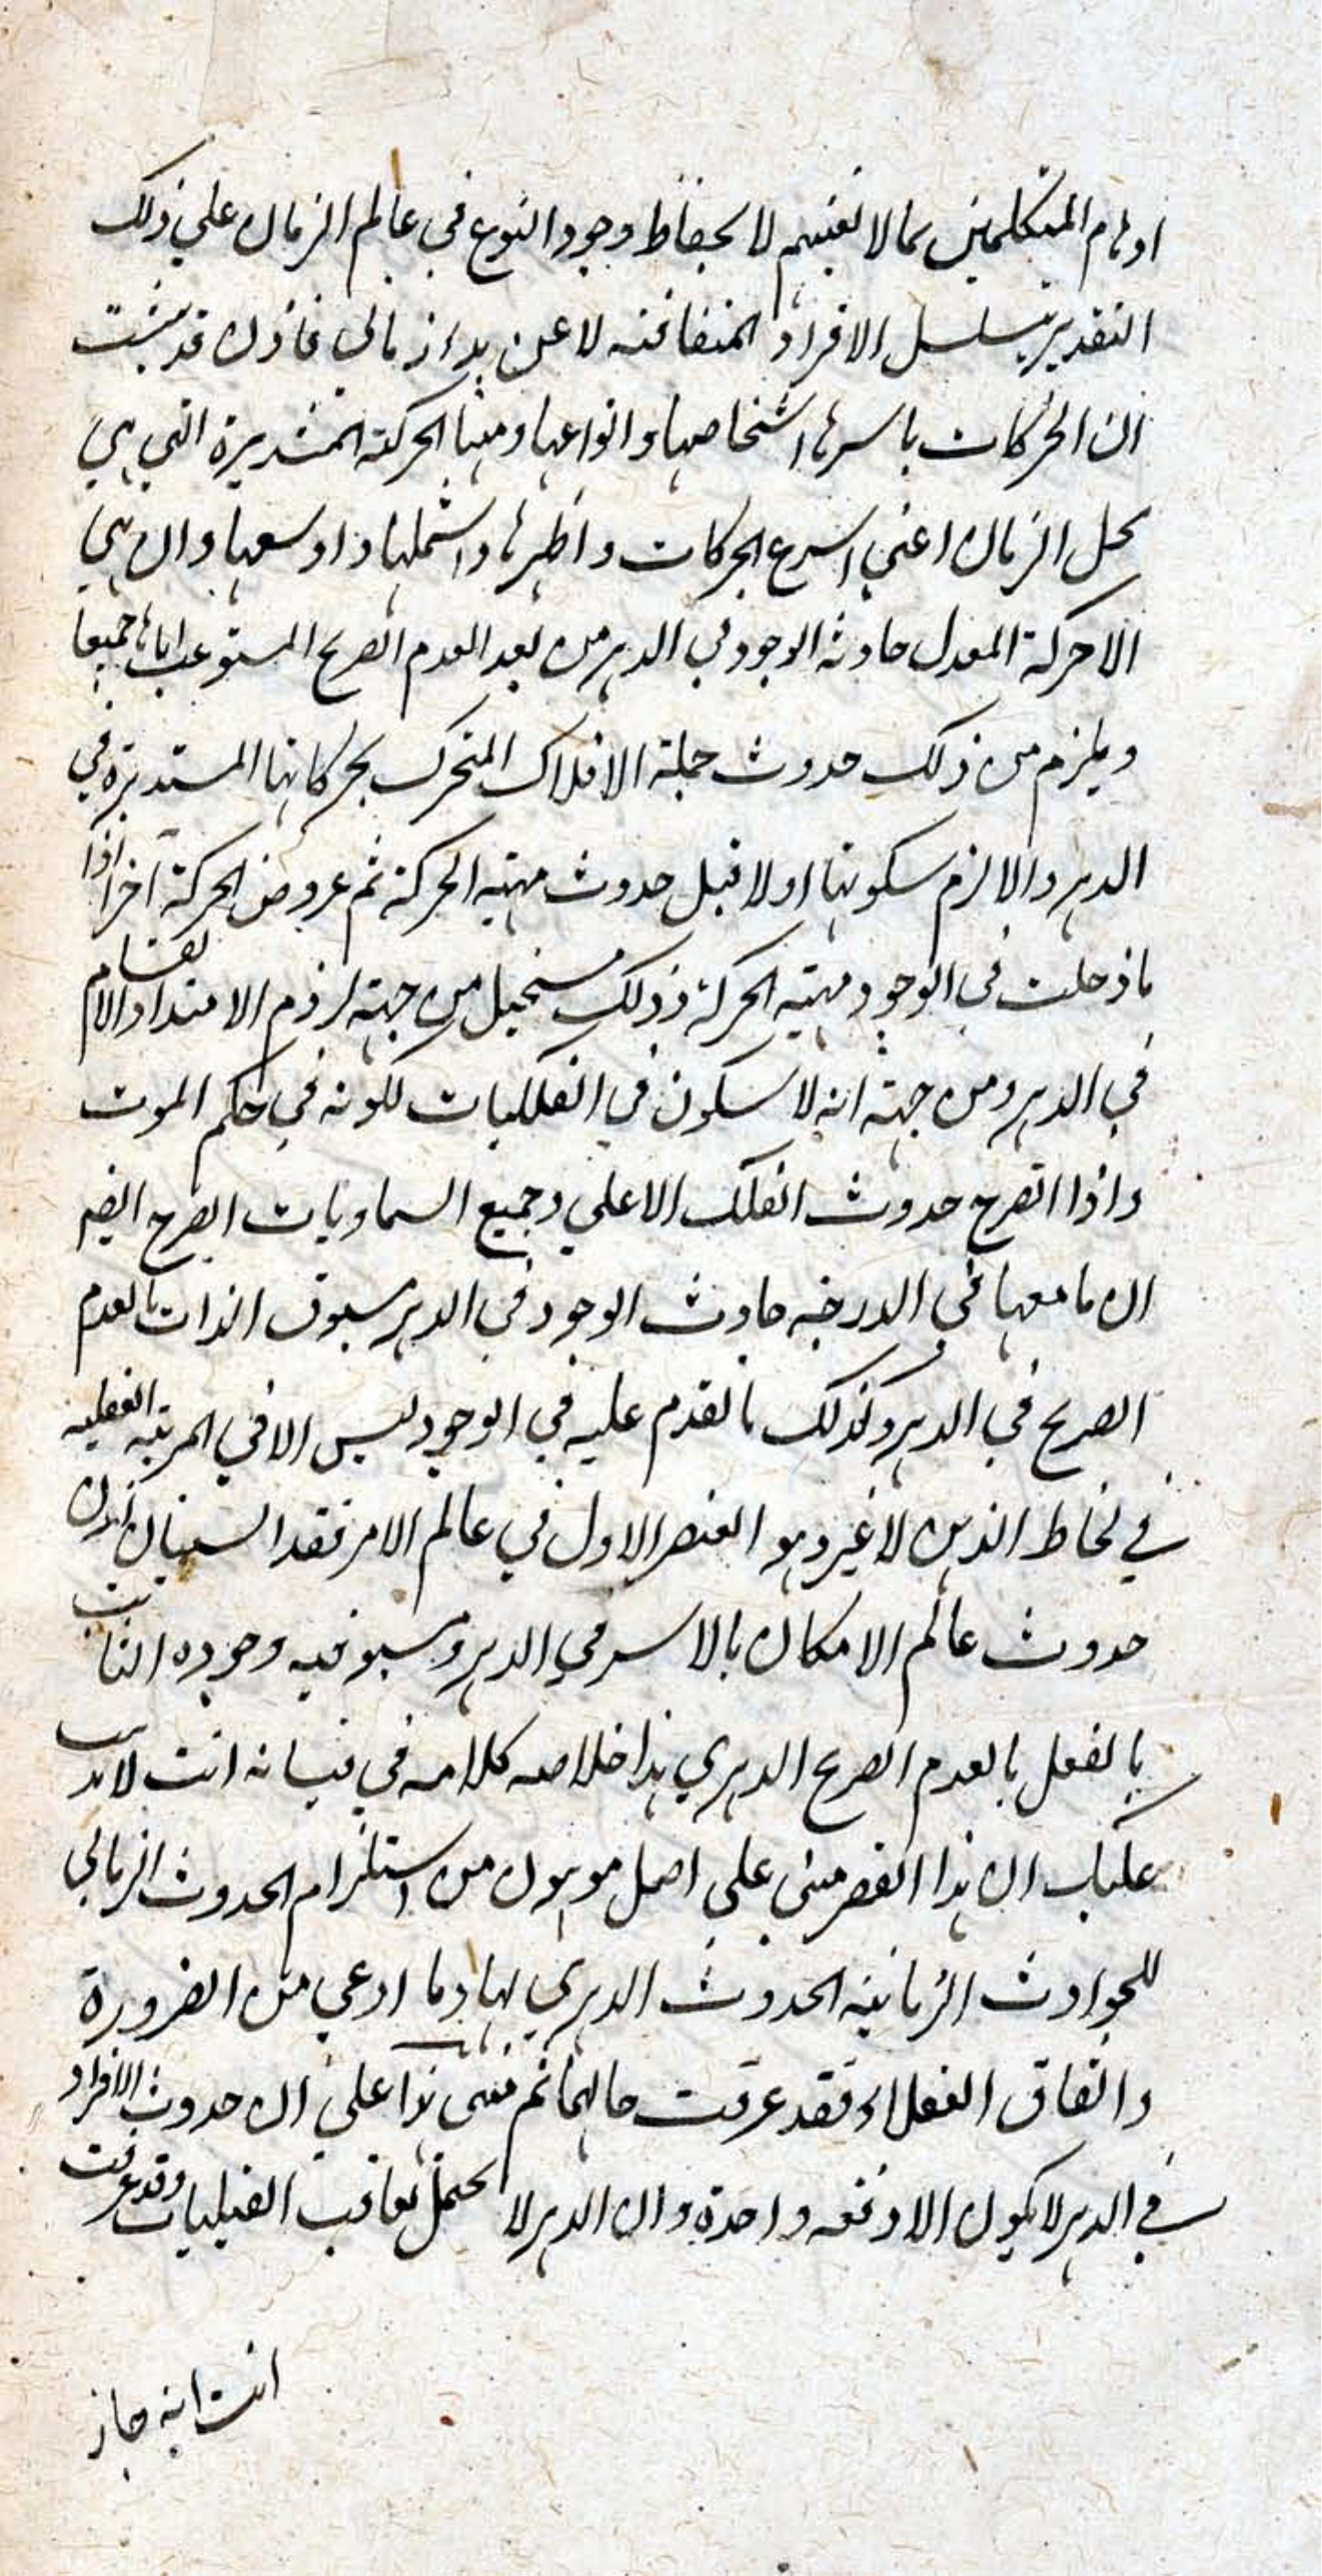 اوهام المتكلمين بما لا يغنيهم لا لحفاظ وجود النوع في عالم الزمان علي ذلك
التقدير بتسلسل الافراد المتعاقبه لا عن بداء زماني فاذن قد ثبت
ان الحركات باسرها اشخاصها وانواعها ومنها الحركة المستديرة التي هي
محل الزمان اعني اسرع الحركات واظهرها واشملها واوسعها وان هي
الا حركة المعدل حادثه الوجود في الدهر من بعد العدم الصريح المستوعب اياها جميعا
ويلزم من ذلك حدوث جملة الافلاك المتحرك بحركاتها المستديرة في
الدهر والا لزم سكونها اولا قبل حدوث مهية الحركة ثم عروض الحركة آخرا اذا
ما دخلت في الوجود مهية الحركة وذلك مستحيل من جهة لزوم الامتداد والانقسام
في الدهر ومن جهة انه لا سكون في الفلكيات لكونه في حكم الموت
واذا انصرح حدوث الفلك الاعلي وجميع السماويات انصرح ايضا
ان ما معها في الدرجه حادث الوجود في الدهر مسبوق الذات بالعدم
الصريح في الدهر وكذلك ما تقدم عليه في الوجود ليس الا في المرتبه العقليه
في لحاظ الذهن لا غير وهو العنصر الاول في عالم الامر فقد استبان اذن
حدوث عالم الامكان بالاسر في الدهر ومسبوقيه وجوده الثابت
بالفعل بالعدم الصريح الدهري هذا خلاصه كلامه في انت لا يذهب
عليك ان هذا القصر مبني علي اصل موهون من استلزام الحدوث الزماني
للحوادث الزمانيه الحدوث الدهري لها وما ادعي من الضرورة
واتفاق العقلاء فقد عرفت حالهما ثم مبنى هذا علي ان حدوث الافراد
في الدهر لا يكون الا دفعه واحدة وان الدهر لا يحتمل تعاقب القبليات وقد عرفت
انت انه جاز